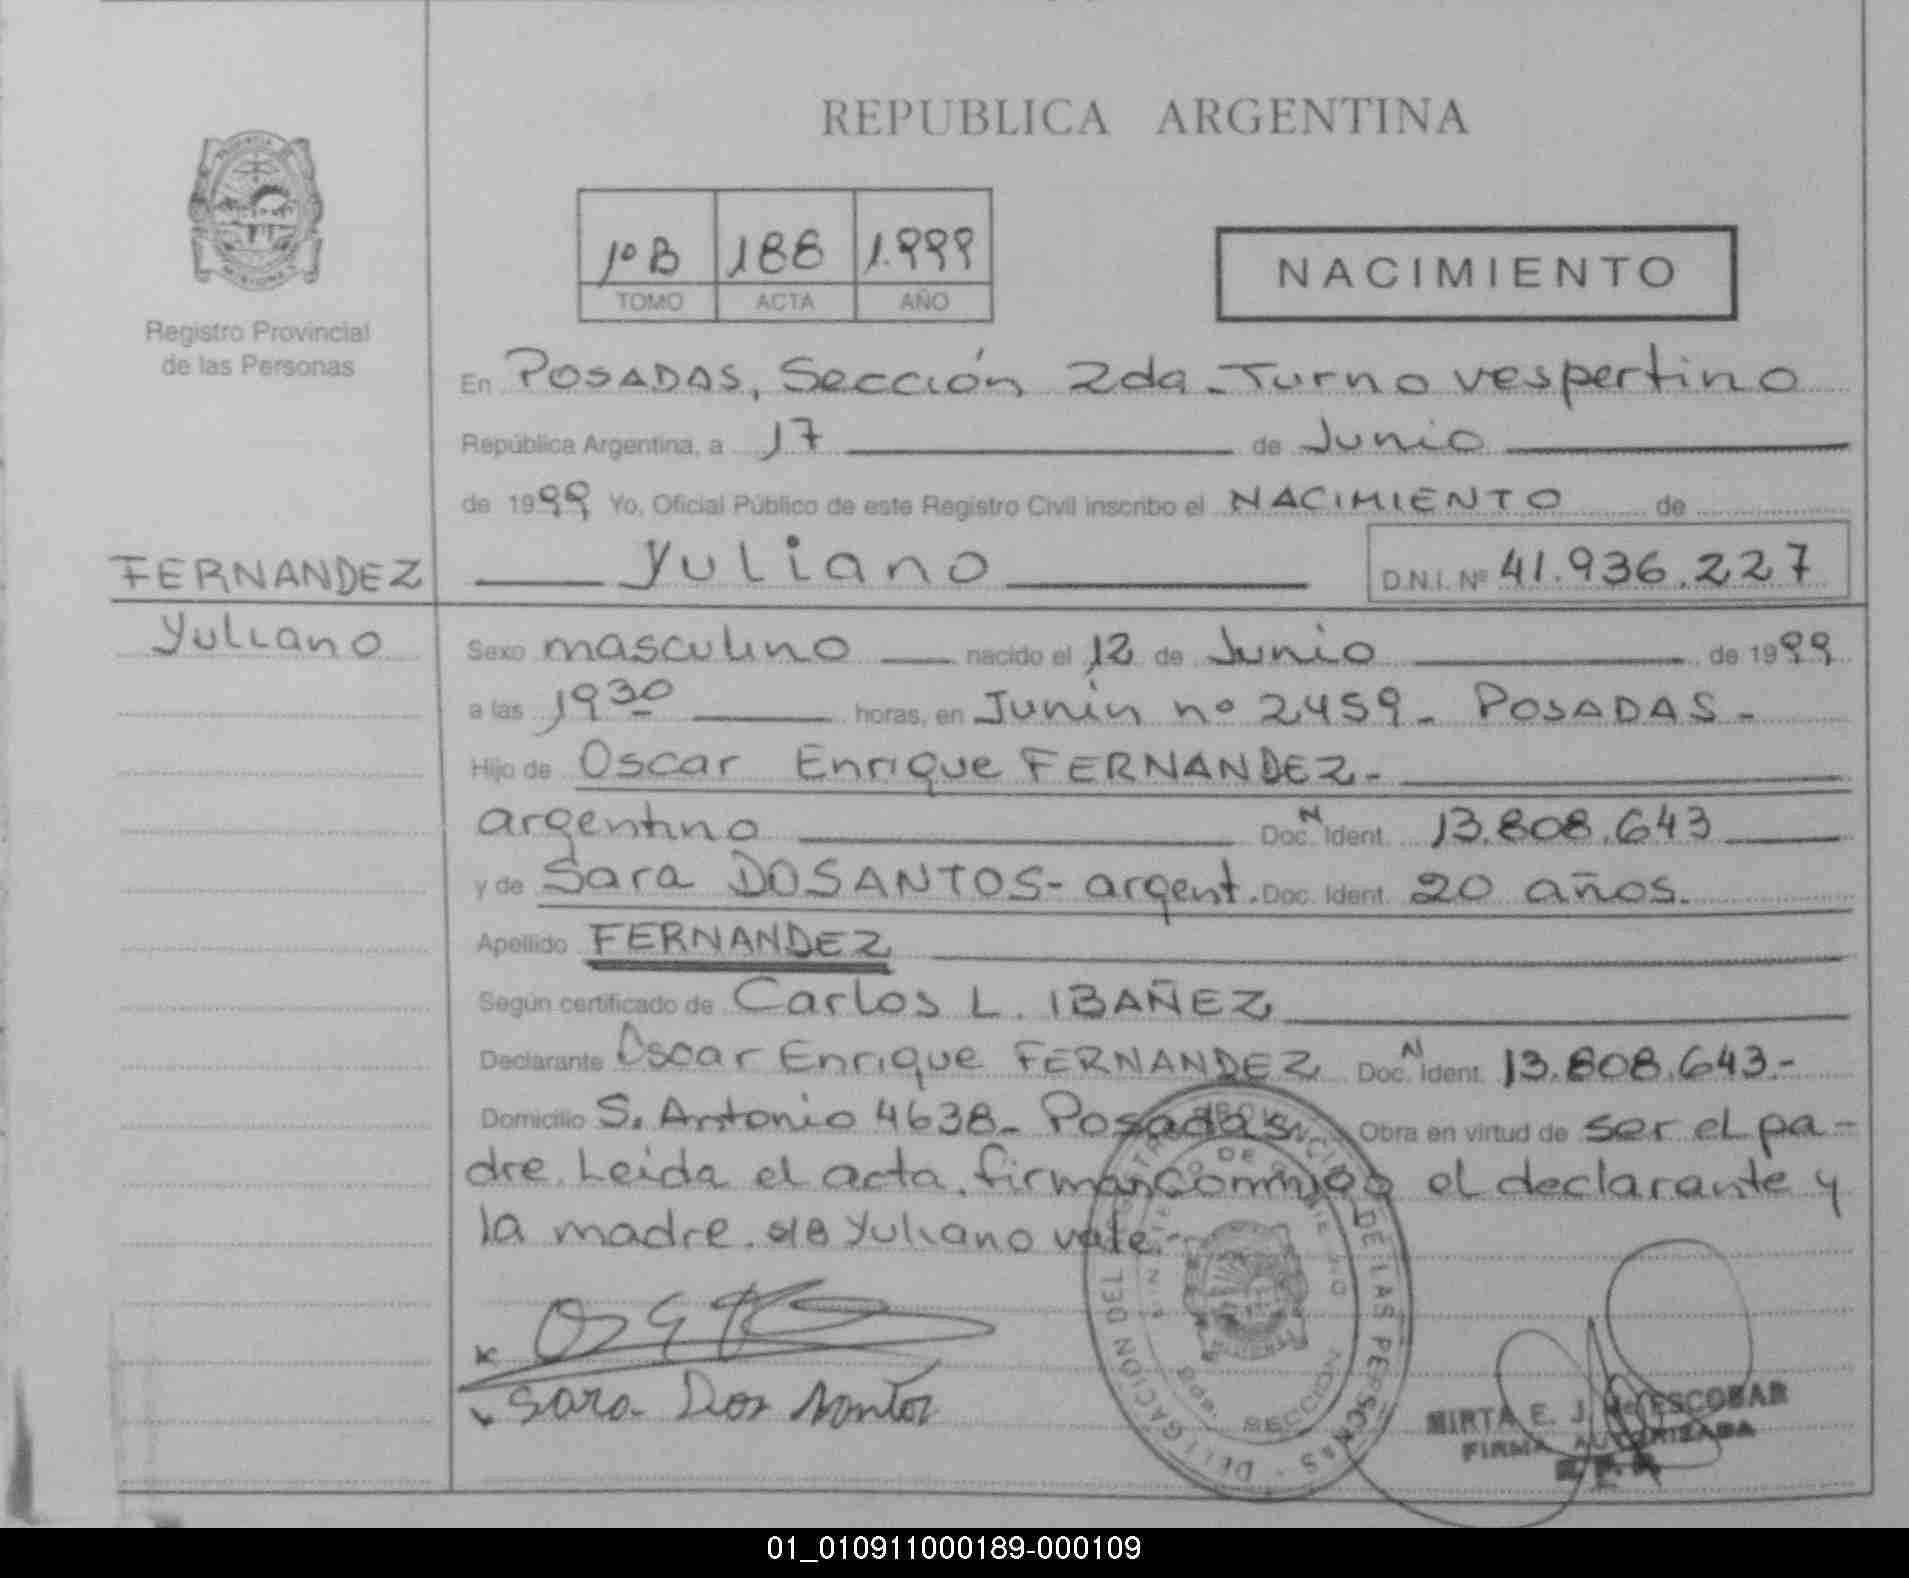 REPUBLICA ARGENTINA
1º B 188 1.999
TOMO ACTA AÑO
NACIMIENTO
Registro Provincial
de las Personas
En POSADAS, Sección 2da - Turno vespertino
República Argentina, a 17 de Junio
de 1999 Yo, Oficial Público de este Registro Civil inscribo el NACIMIENTO de
Yuliano D.N.I. Nº 41.936.227
FERNANDEZ
Yuliano
Sexo masculino nacido el 12 de Junio de 1999
a las 19 30 horas, en Junín nº 2459 - POSADAS -
Hijo de Oscar Enrique FERNANDEZ -
argentino Doc. N Ident. 13.808.643
y de Sara DOSANTOS - argent. Doc. Ident. 20 años.
Apellido FERNANDEZ
Según certificado de Carlos L. IBAÑEZ
Declarante Oscar Enrique FERNANDEZ Doc. N Ident. 13.808.643.-
Domicilio S. Antonio 4638 - Posadas Obra en virtud de ser el pa-
dre. Leída el acta, firman conmigo el declarante y
la madre. s/B Yuliano vale.-
Sara Dos Santos
DELEGACION DEL REGISTRO PROVINCIAL DE LAS PERSONAS
SECCION
MIRTA E. J. de ESCOBAR
FIRMA AUTORIZADA
01_010911000189-000109